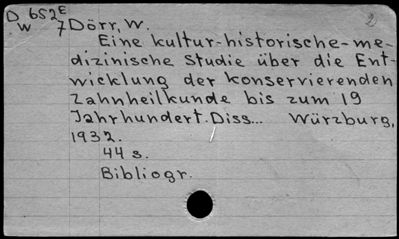 D 652E 2
W 7 Dörr, W.
Eine kultur-historische-me-
dizinische Studie über die Ent-
wicklung der konservierenden
Zahnheilkunde bis zum 19
Jahrhundert. Diss... Würzburg,
1932.
44 s.
Bibliogr.